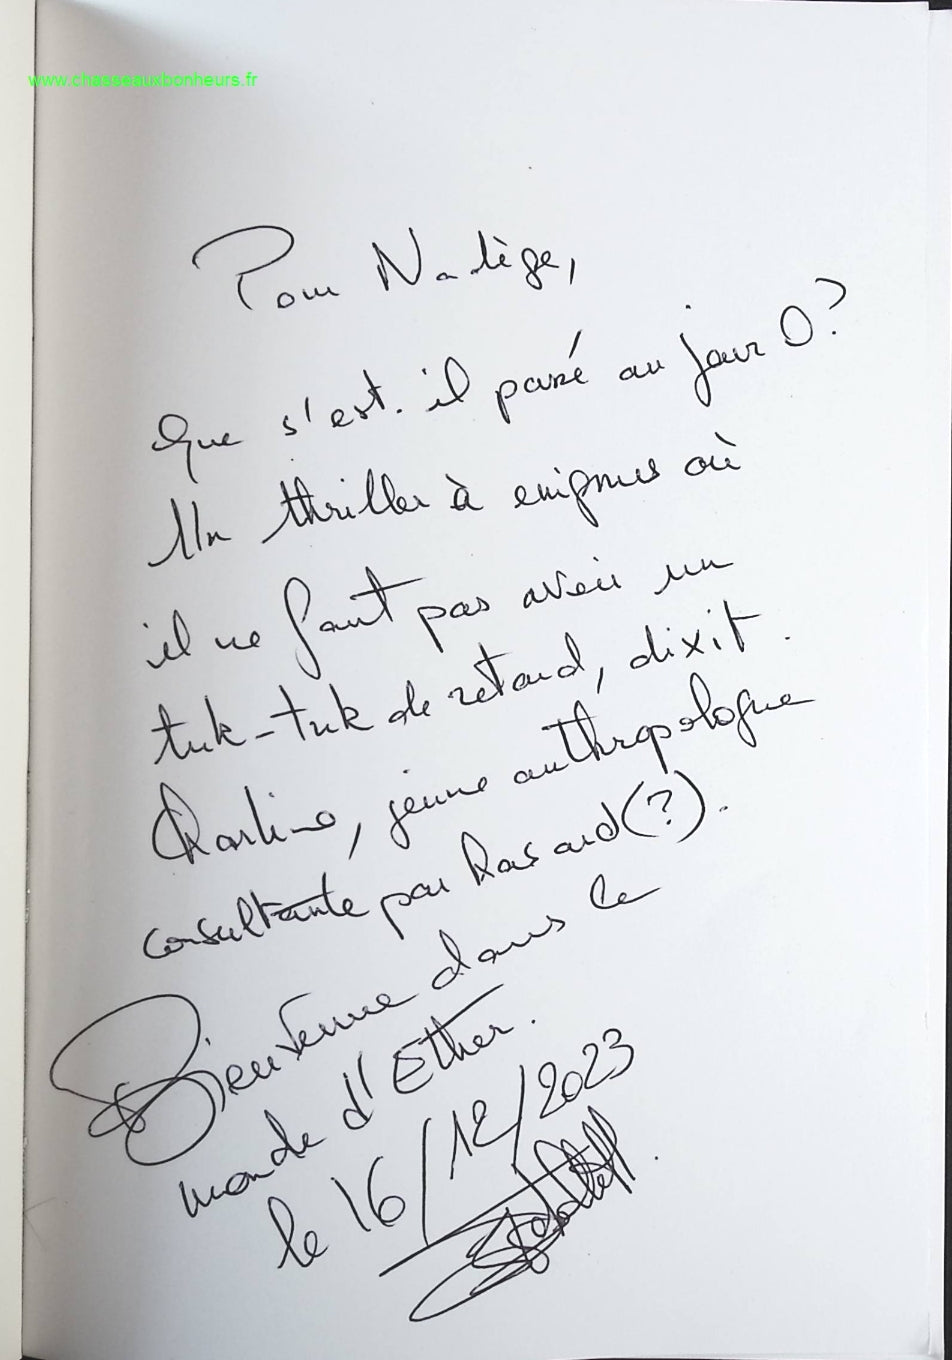 www.chasseauxbonheurs.fr
Pour Nadège,
Que s'est-il passé au jour 0?
Un thriller à enigmes où
il ne faut pas avoir un
tuk-tuk de retard, dixit
Charline, jeune anthropologue
consultante par hasard (?).
Bienvenue dans le
monde d'Ether.
le 16/12/2023